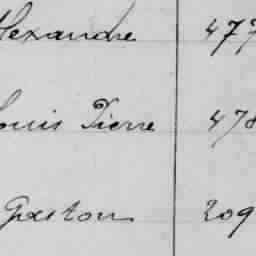 Alexandre 477
Louis Pierre 478
Gaston 209